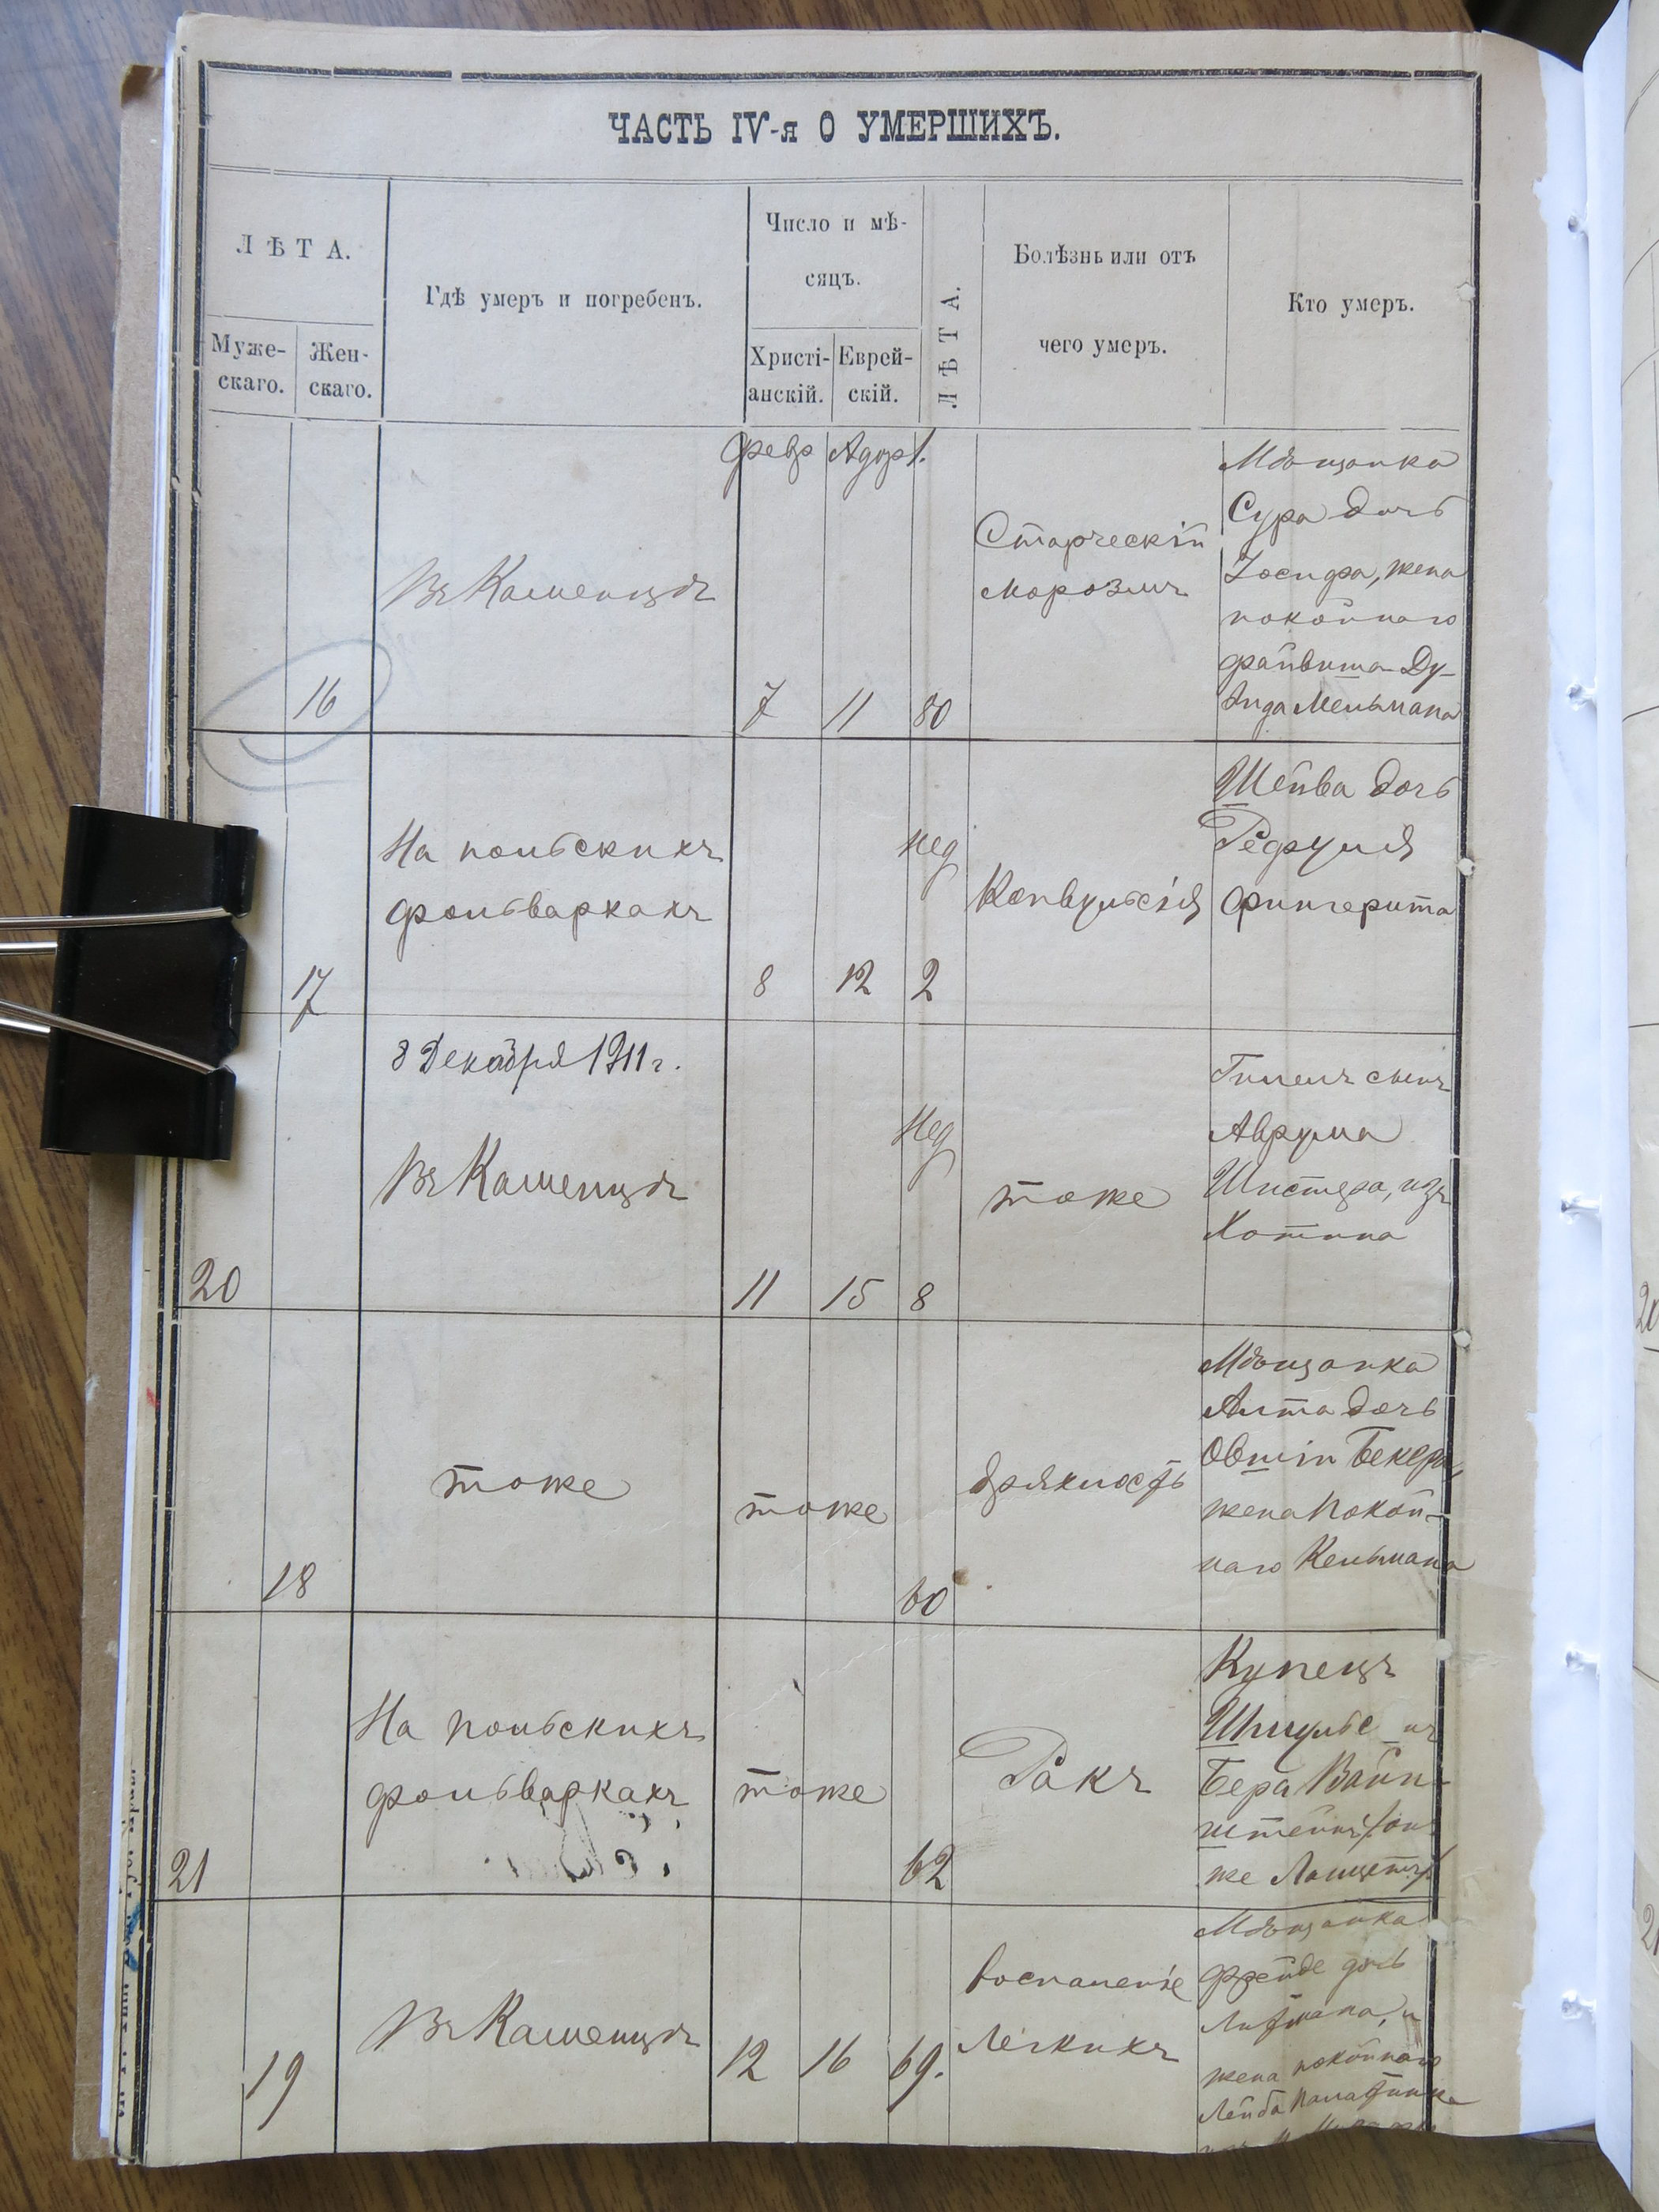 ЧАСТЬ IV-я О УМЕРШИХЪ.
ЛѢТА.
Муже-
скаго.
Жен-
скаго.
Гдѣ умеръ и погребенъ.
Число и мѣ-
сяцъ.
Христі-
анскій.
Еврей-
скій.
ЛѢТА.
Болѣзнь или отъ
чего умеръ.
Кто умеръ.
Февр Адар 1.
16
Въ Каменцѣ
7 11 80
Старческій
Мѣщанка
Сура дочь
Іосифа, жена
покойнаго
Файвиша Ду-
вида Мельмана
17
На польскихъ
фольваркахъ
8 12
нед
2
Конвульсія
Шейва дочь
Рефуля
Фингерита
8 Декабря 1911 г.
20
Въ Каменцѣ
11 15
Нед
8
тоже
Гилель сынъ
Аврума
Шистера, изъ
Хотина
18
тоже
тоже
60
дряхлость
Мѣщанка
Алта дочь
Овшіи Бекера,
жена покой-
наго Кельмана
21
На польскихъ
фольваркахъ
тоже
62
Ракъ
Купецъ
Шмуль
Бера Вайн-
штейнъ (он
же
19
Въ Каменцѣ
12 16 69.
Воспаленіе
Легкихъ
Мѣщанка
Фрейде дочь
Литмана,
жена покойнаго
Лейба